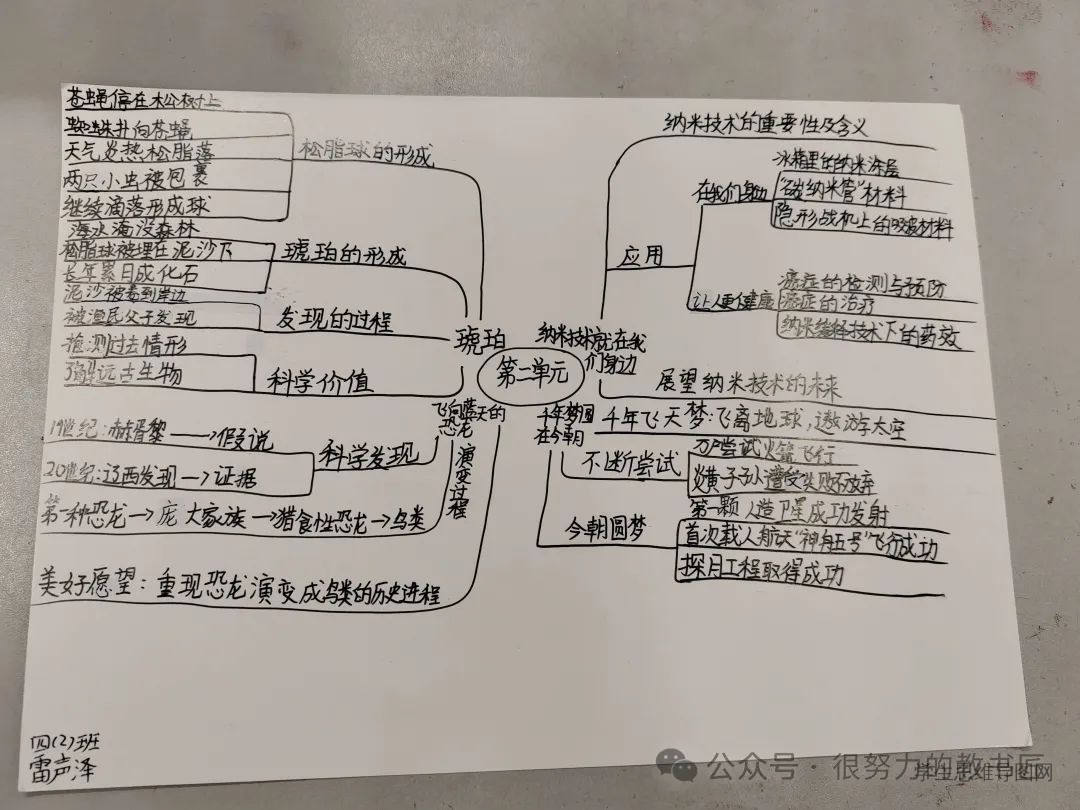 苍蝇停在松树上
蜘蛛扑向苍蝇
天气炎热松脂落
两只小虫被包裹
继续滴落形成球
松脂球的形成
海水淹没森林
松脂球被埋在泥沙下
长年累日成化石
琥珀的形成
泥沙被卷到岸边
被渔民父子发现
发现的过程
推测过去情形
了解远古生物
科学价值
琥珀
第二单元
纳米技术就在我
们身边
纳米技术的重要性及含义
应用
在我们身边
冰箱里的纳米涂层
"碳纳米管"材料
隐形战机上的吸波材料
让人更健康
癌症的检测与预防
癌症的治疗
纳米缓释技术下的药效
展望纳米技术的未来
飞向蓝天的
恐龙
科学发现
19世纪:赫胥黎→假说
20世纪:辽西发现→证据
演变过程
第一种恐龙→庞大家族→猎食性恐龙→鸟类
美好愿望：重现恐龙演变成鸟类的历史进程
千年梦圆
在今朝
千年飞天梦:飞离地球,遨游太空
不断尝试
万户尝试火箭飞行
炎黄子孙遭受失败不放弃
今朝圆梦
第一颗人造卫星成功发射
首次载人航天"神舟五号"飞行成功
探月工程取得成功
四(2)班
雷声泽
公众号·很努力的教书匠
学生思维导图网